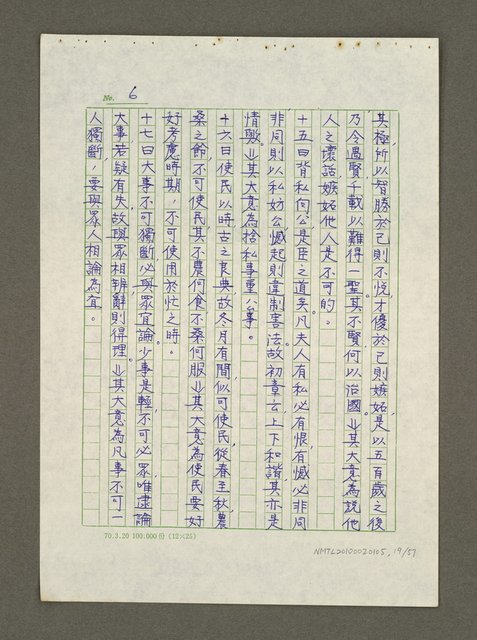 No. 6
其極所以智勝於己則不悅才優於己則嫉妬是以五百歲之後
乃令遇賢千載以難得一聖其不賢何以治國』其大意為說他
人之壞話嫉妬他人是不可的。
十五曰背私向公是臣之道矣凡夫人有私必有恨有憾必非同
非同則以私妨公憾起則違制害法故初章云上下和諧其亦是
情歟』其大意為捨私事重公事。
十六曰使民以時古之良典故冬月有間似可使民從春至秋農
桑之節不可使民其不農何食不桑何服』其大意為使民要好
好考慮時期，不可使用於忙之時。
十七曰大事不可獨斷必與眾宜論少事是輕不可必眾唯逮論
大事若疑有失故與眾相辨辭則得理』其大意為凡事不可一
人獨斷，要與眾人相論為宜。
70.3.20 100.000份 (12×25)
NMTL20100020105, 19/57